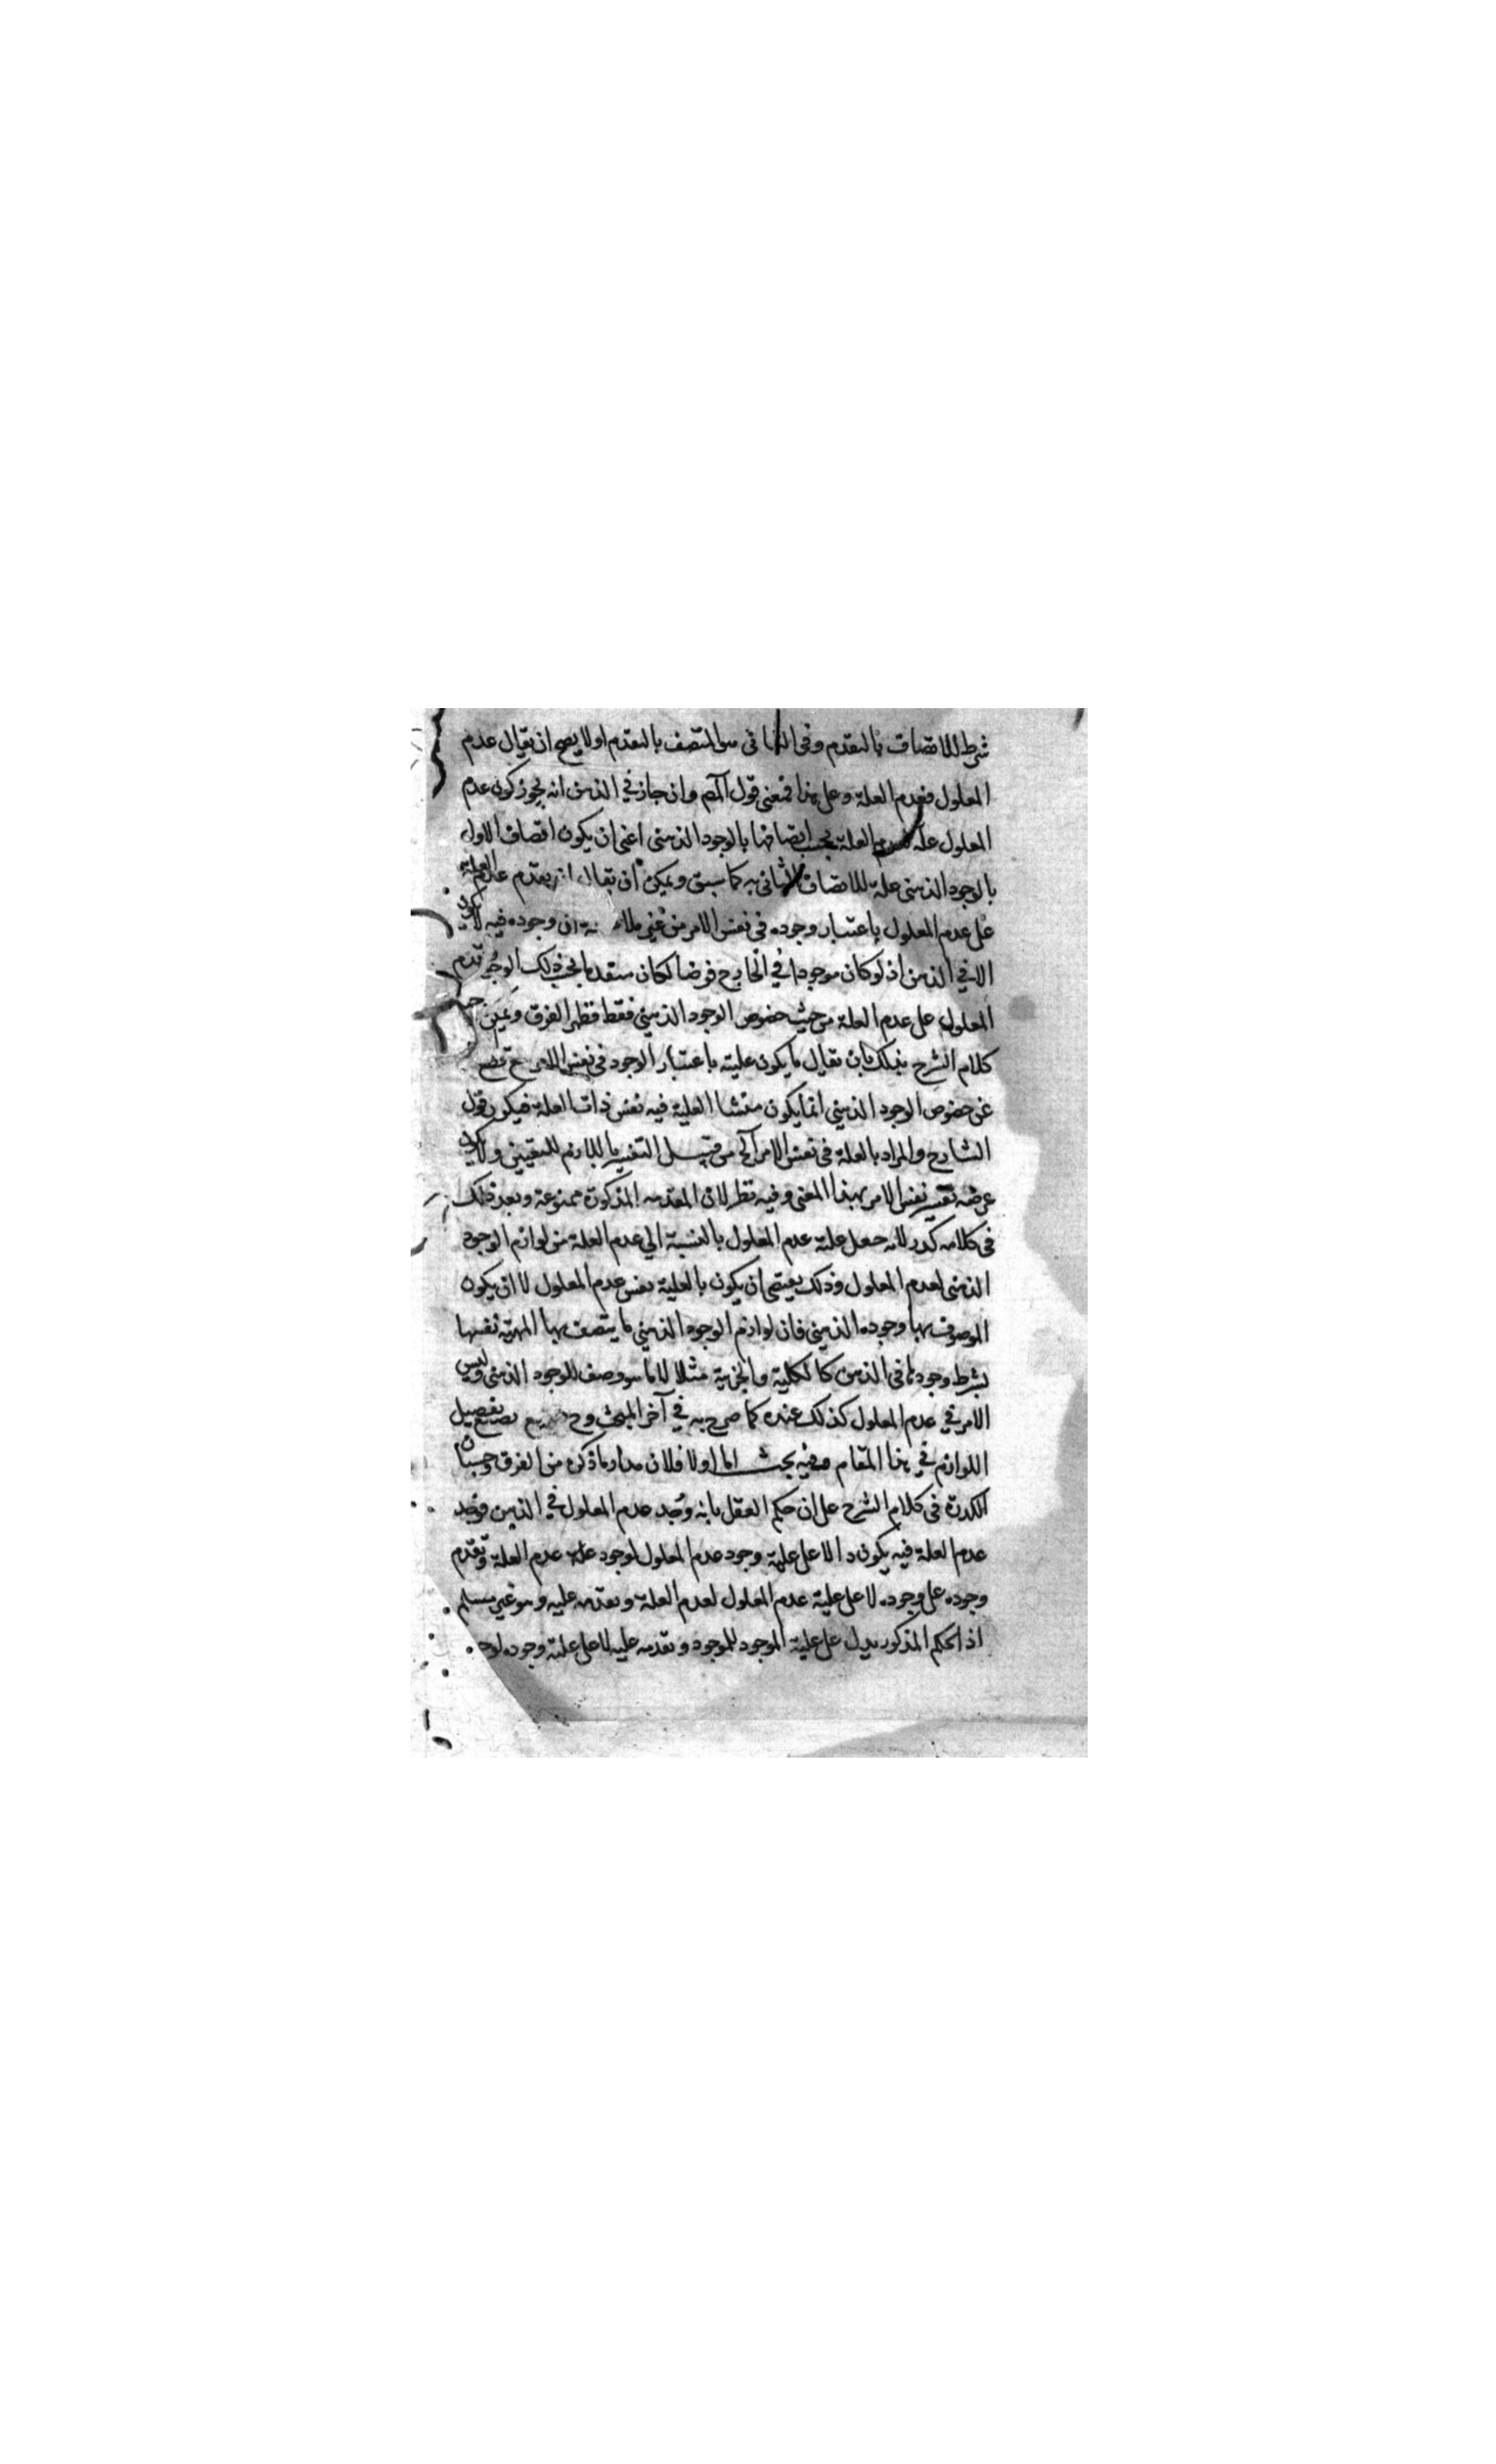 شرط للاتصاف بالتقدم وفي الثاني هو المتصف بالتقدم اولا يصح ان يقال عدم
المعلول فعدم العلة وعلى هذا فمعنى قول المص وان جاز في الذهن انه يجوز كون عدم
المعلول علة لعدم العلة بحسب اتصافها بالوجود الذهني اعني ان يكون اتصاف الاول
بالوجود الذهني علة للاتصاف الثاني به كما سبق ويمكن ان يقال ان تقدم عدم العلة
على عدم المعلول باعتبار وجوده في نفس الامر من غير ان وجوده فيه لا يكون
الا في الذهن اذ لو كان موجودا في الخارج فرضا لكان متقدما بحسب ذلك الوجود تقدم
المعلول على عدم العلة من حيث خصوص الوجود الذهني فقط فظهر الفرق ويمكن
كلام الشرح بذلك بان يقال ما يكون علية باعتبار الوجود في نفس الامر مع قطع
عن خصوص الوجود الذهني انما يكون منشأ العلية فيه نفس ذات العلة فيكون قول
الشارح والمراد بالعلة في نفس الامر الخ من قبيل التفسير باللازم للتعيين ولا يكون
غرضه تفسير نفس الامر بهذا المعنى وفيه نظر لان المقدمه المذكورة ممنوعة وبعد ذلك
في كلامه كدر لانه جعل علية عدم المعلول بالنسبة الى عدم العلة من لوازم الوجود
الذهني لعدم المعلول وذلك يقتضي ان يكون بالعلية نفس عدم المعلول لا ان يكون
الموصوف بها وجوده الذهني فان لوازم الوجود الذهني ما يتصف بها المهية نفسها
بشرط وجودها في الذهن كالكلية والجزئية مثلا لا ما هو وصف للوجود الذهني وليس
الامر في عدم المعلول كذلك عنده كما صرح به في آخر المبحث وح تفصيل
اللوازم في هذا المقام وفيه بحث اما اولا فلان مدار ما ذكره من الفرق وحسبان
الكدرة في كلام الشرح على ان حكم العقل بانه وجد عدم المعلول في الذهن فوجد
عدم العلة فيه يكون دالا على علية وجود عدم المعلول لوجود عدم العلة وتقدم
وجوده على وجوده لا على علية عدم المعلول لعدم العلة وتقدمه عليه وهو غير مسلم
اذ الحكم المذكور يدل على علية الموجود للموجود وتقدمه عليه لا على علية وجوده